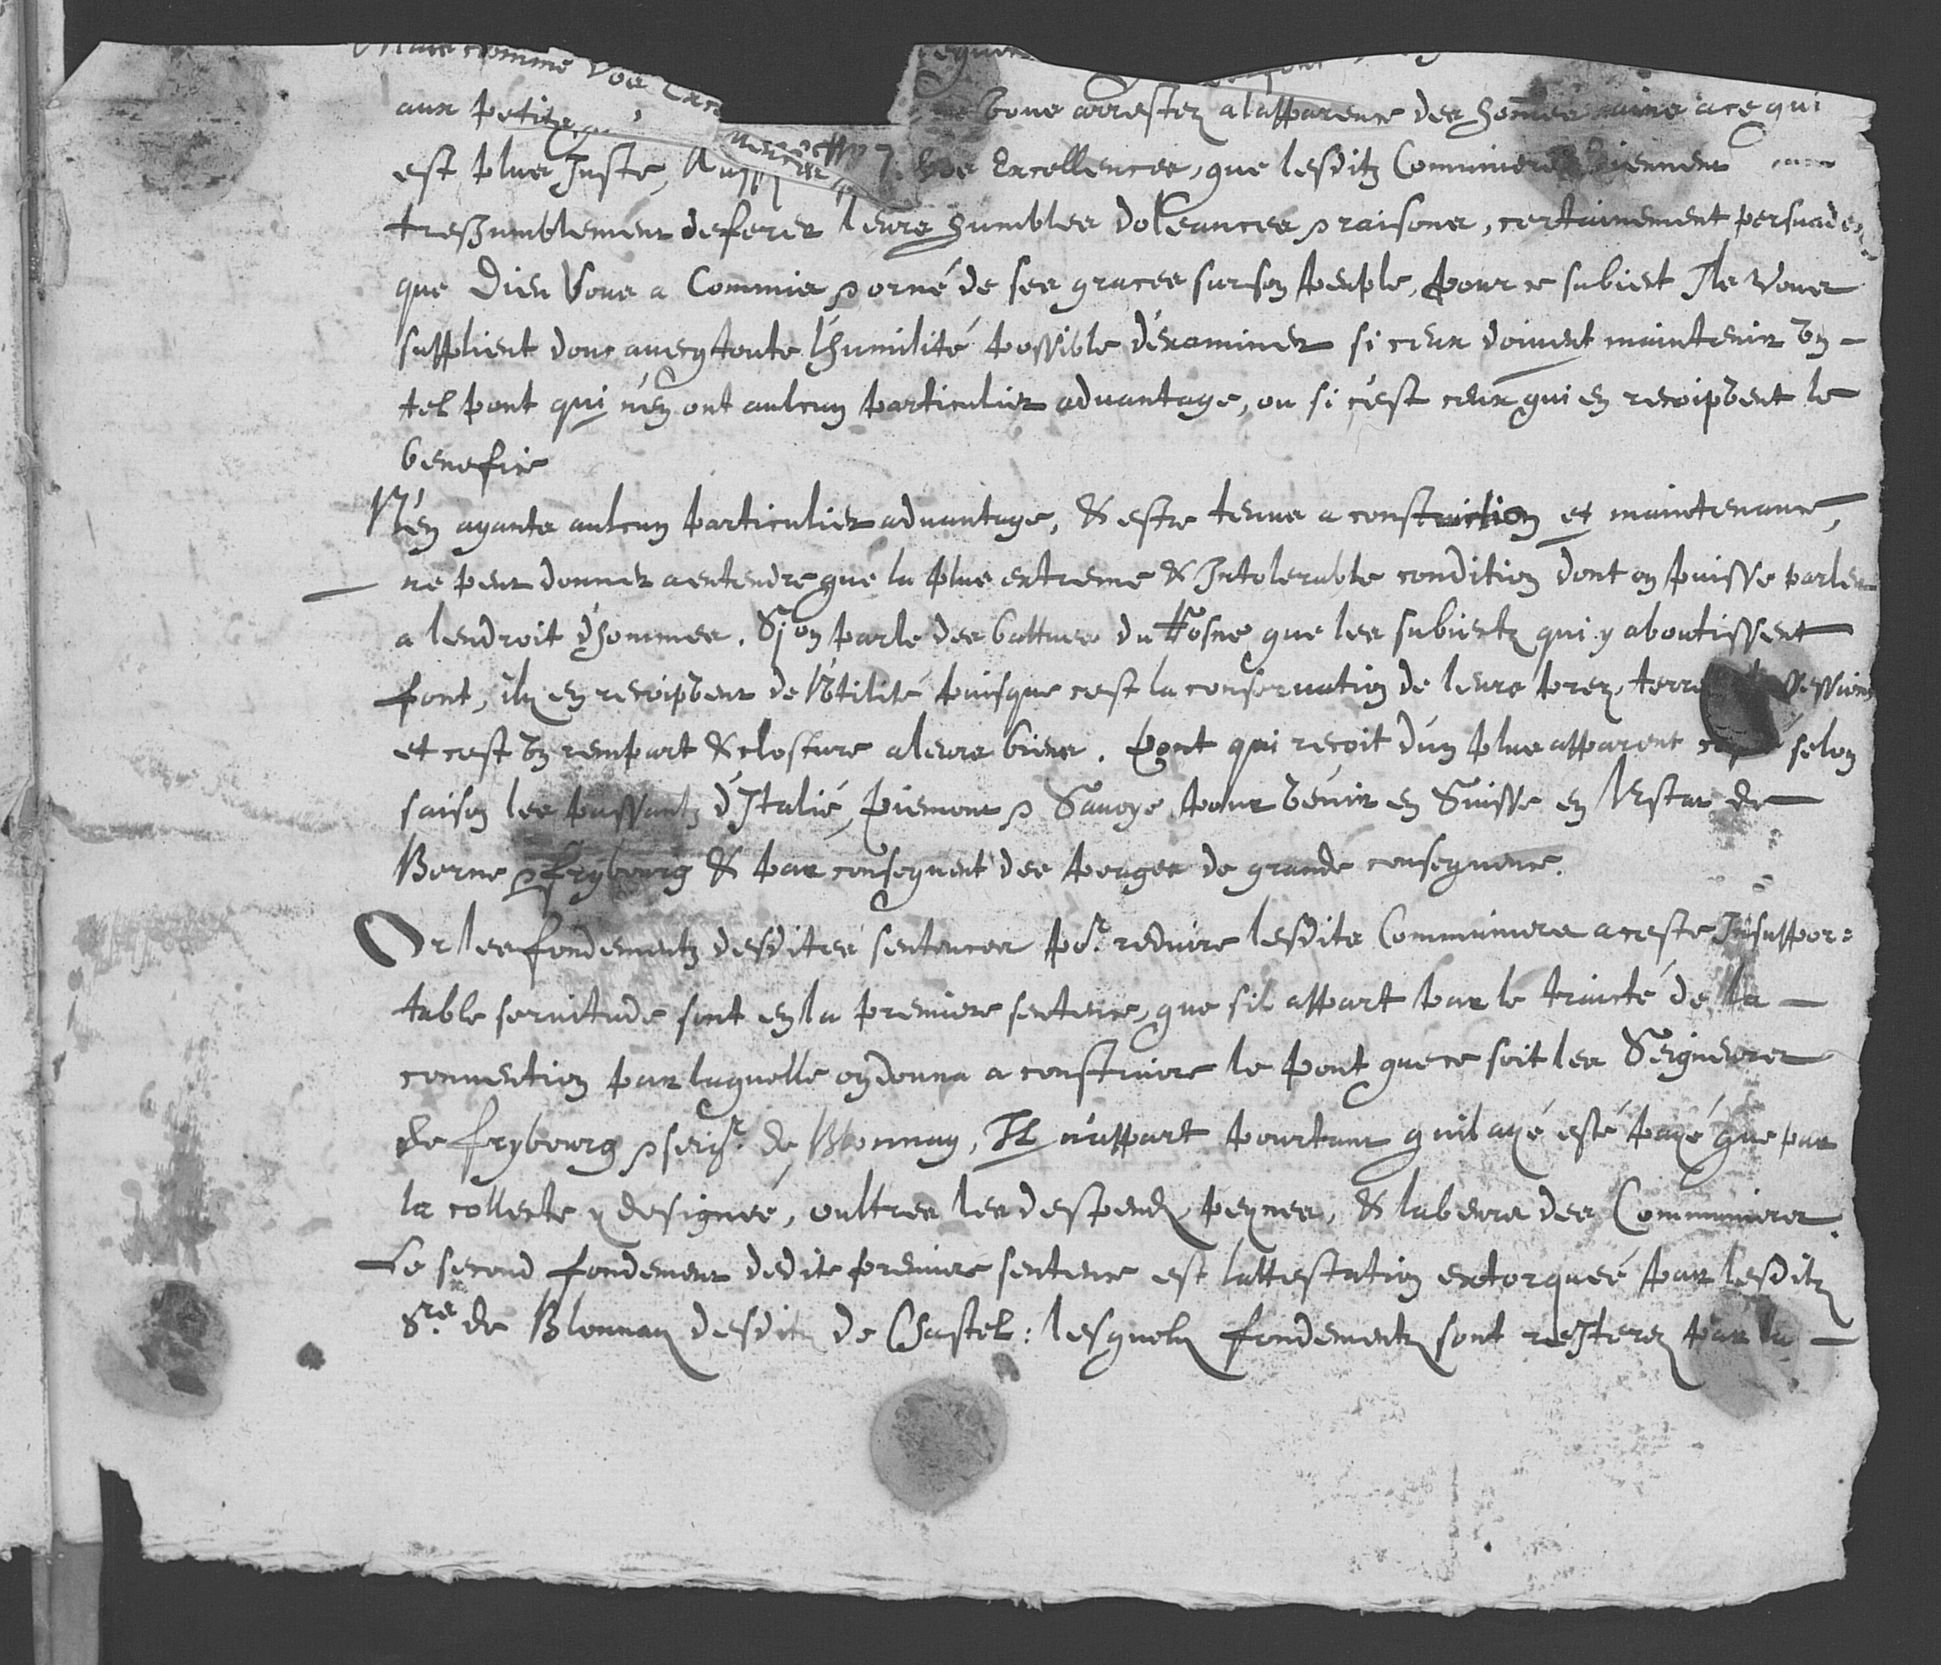 Mais comme Vos Exc
aux petitz vous arrestez a lapparence des hommes ains a ce qui
est plus Juste, Aussy Vos Excellences, que lesditz Communiers viennent
treshumblement deferer leurs humbles doleances & raisons, certainement persuadez
que Dieu Vous a Commis & orné de ses graces sur son peuple, pour ce subiect Ils vous
supplient donc avecq toute l'humilité possible d'examiner si ceux doivent maintenir un
tel pont qui n'en ont aulcun particulier advantage, ou si c'est ceux qui en recoipvent le
benefice
N'en ayants aulcun particulier advantage, & estre tenus a construction et maintenance,
ne peut donner a entendre que la plus extreme & Intolerable condition dont on puisse parler
a lendroit d'hommes. Si on parle des battues du Rosne que les subiectz qui y aboutissent
font, ilz en recoipvent de Vtilité puisque cest la conservation de leurs prez, terres possessions
et cest un rempart & closture a leurs biens. Pont qui recoit d'un plus apparent selon
saison les passantz d'Italie, piemont & Savoye pour venir en Suisse en l'Estat de
Berne & frybourg & par consequent des peages de grande consequence.
Or les fondementz desdites sentences por. reduire lesdits Communiers a ceste Insuppor=
table servitude sont en la premiere sentence, que sil appart par le traicté de la
convention par laquelle on donna a construire le pont que ce soit les Seigneurs
de frybourg & seigr. de Blonnay, Il n'appart pourtant quil ayé esté payé que par
la collecte y designée, oultres les despends, peynes, & labeurs des Communiers.
Le second fondement dedite premiere sentence est lattestation extorquée par lesditz
Srs de Blonnay desditz de Chastel: lesquelz fondementz sont reJterez par la